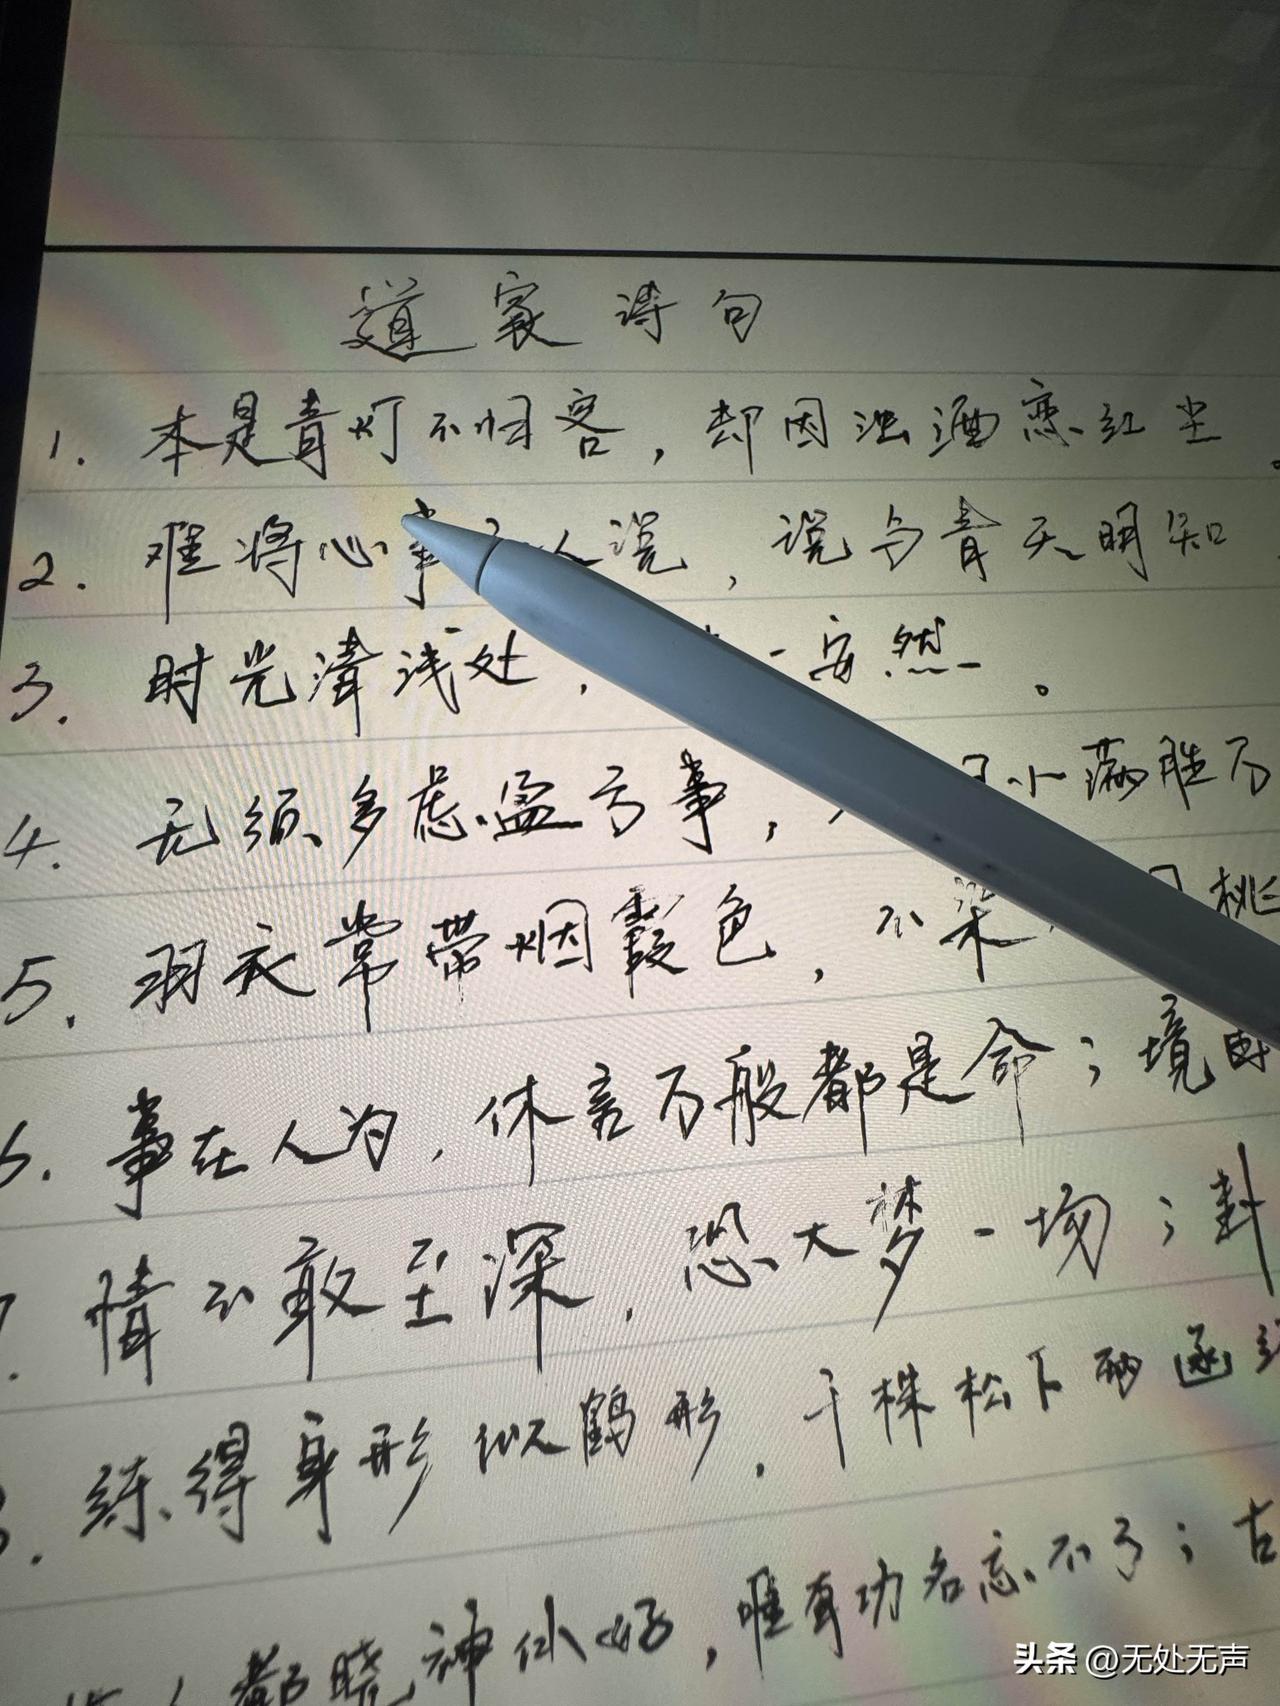 道家诗句
1. 本是青灯不归客，却因浊酒恋红尘。
2. 难将心事 人说，说与青天明 知
3. 时光清浅处， 安然。
4. 无须多虑盈亏事， 小满胜万
5. 羽衣常带烟霞色，不染 桃
6. 事在人为，休言万般都是命；境由
情不敢至深，恐大梦一场；卦
练得身形似鹤形，千株松下两函
都晓神仙好，唯有功名忘不了；古
头条 @无处无声